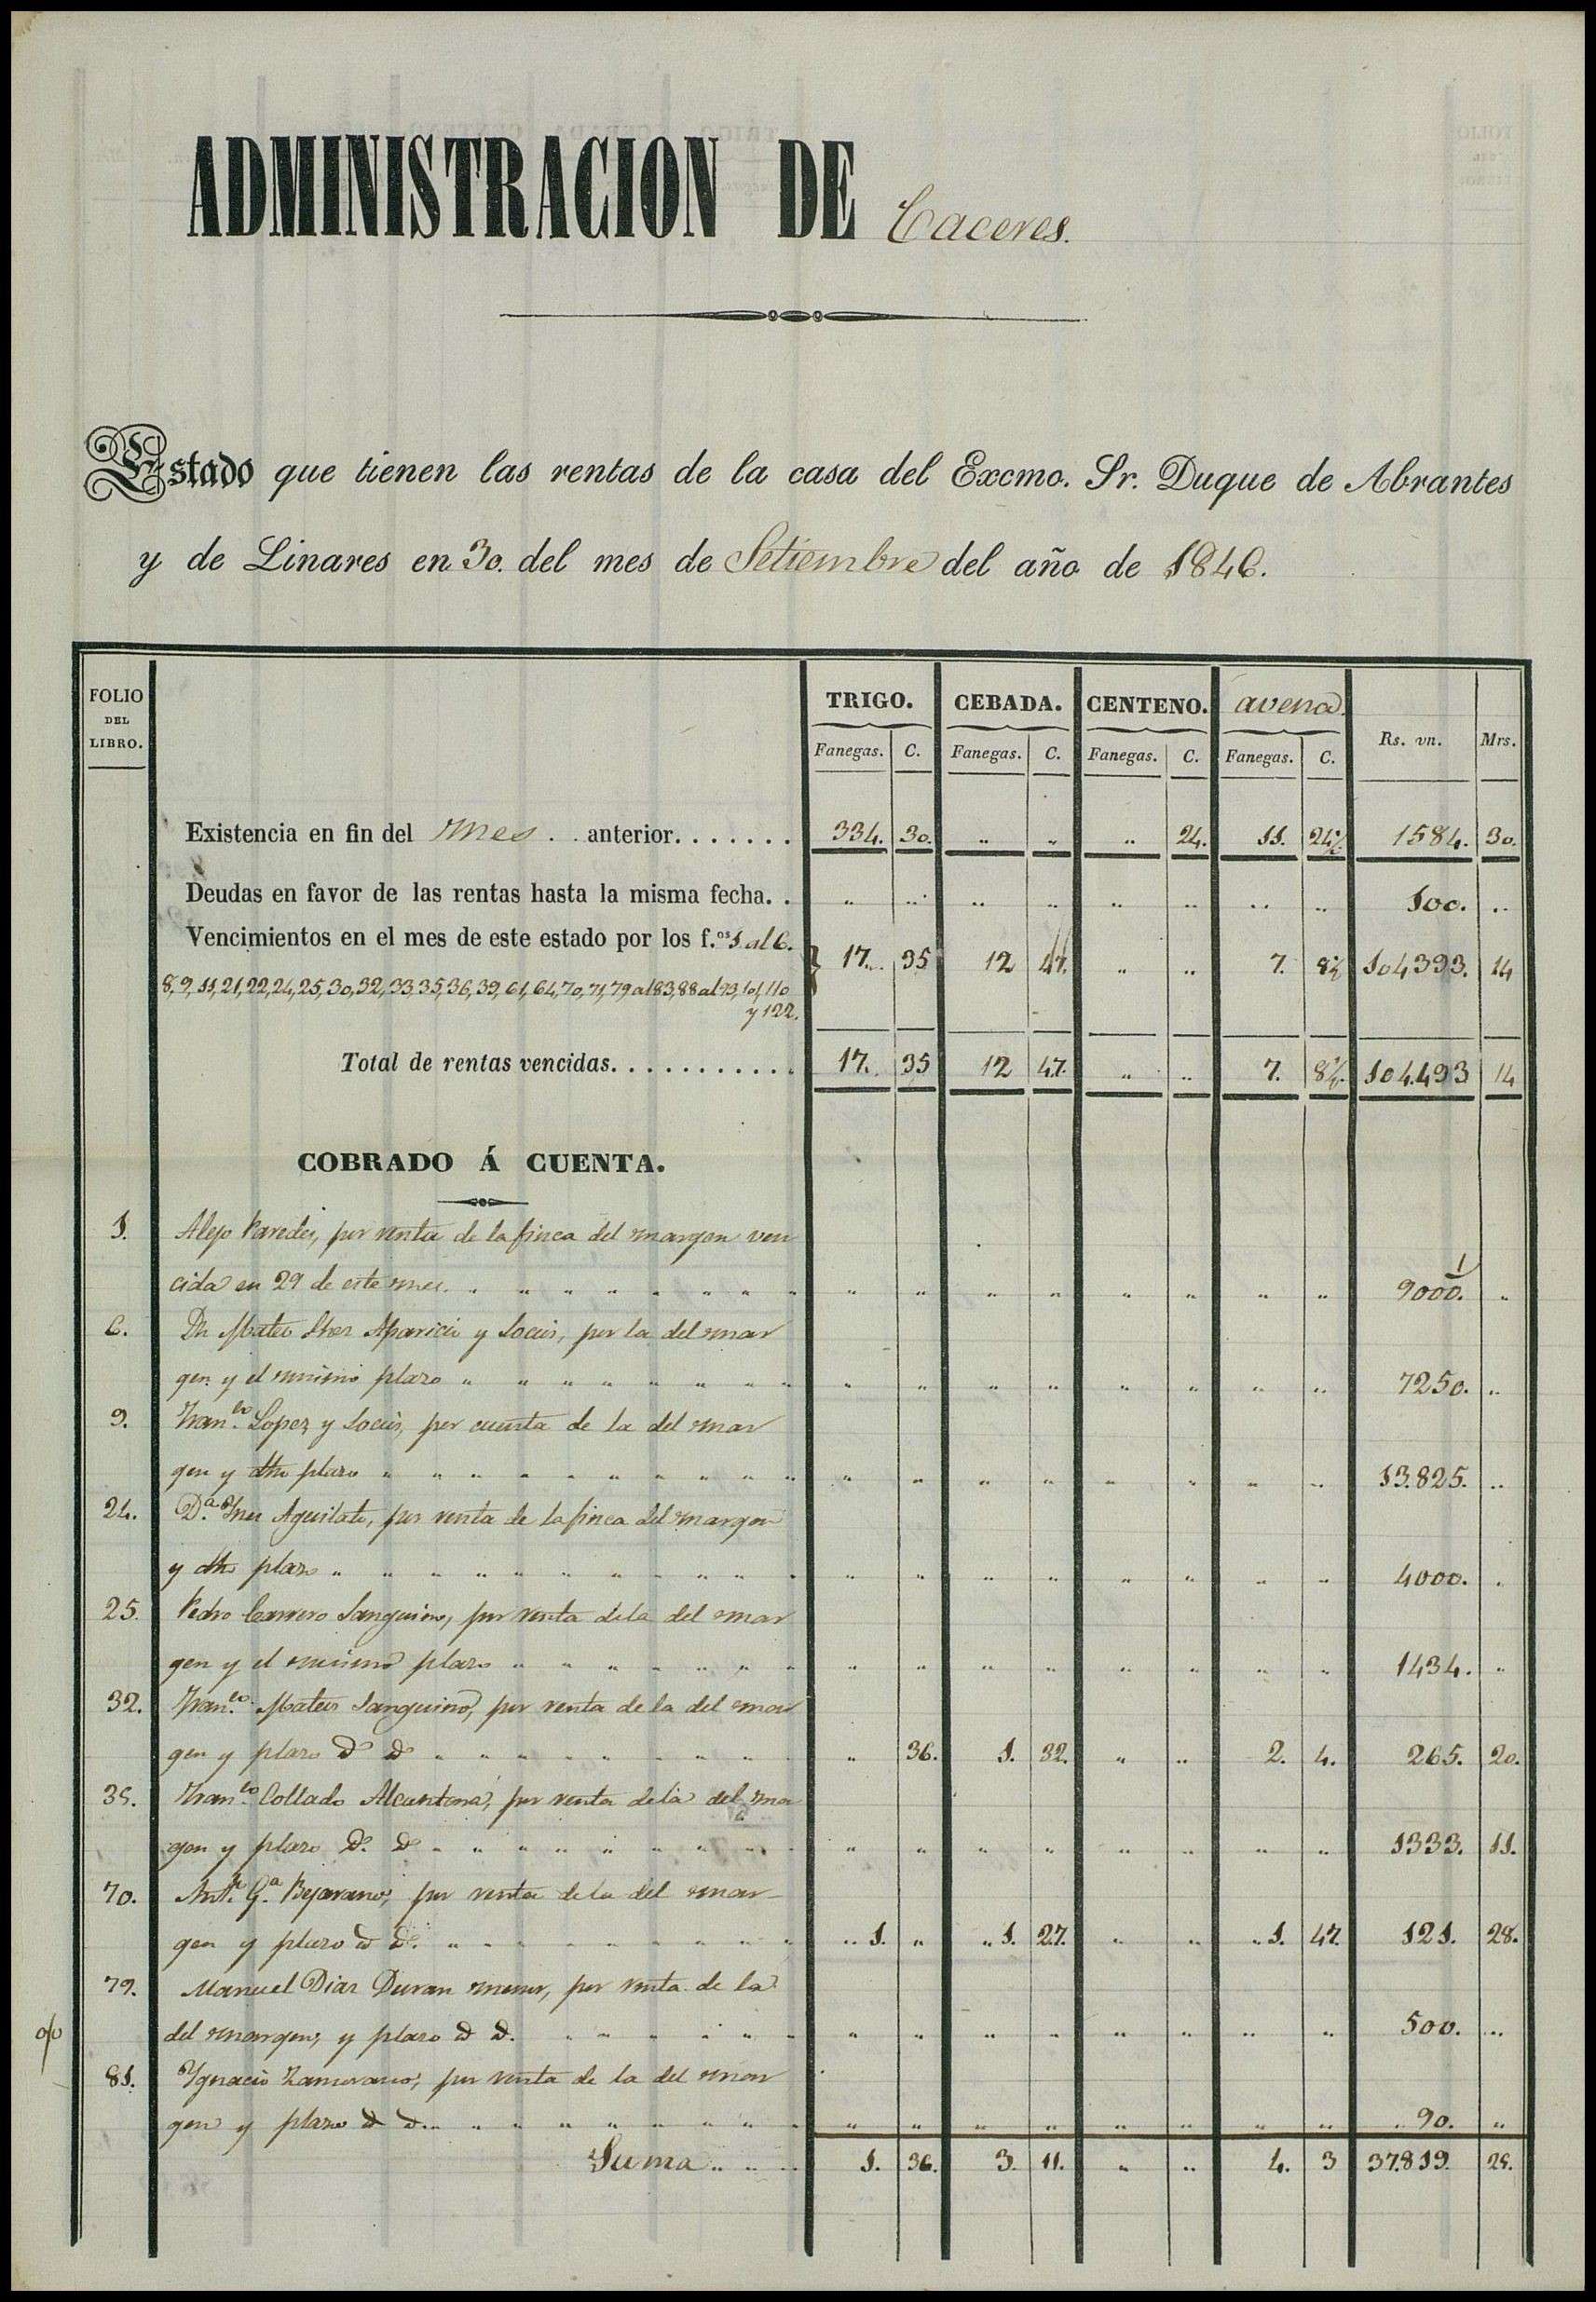 ADMINISTRACION DE Caceres.
Estado que tienen las rentas de la casa del Excmo. Sr. Duque de Abrantes
y de Linares en 30. del mes de Setiembre del año de 1846.
FOLIO DEL LIBRO. TRIGO. CEBADA. CENTENO. avena. Rs. vn. Mrs.
Fanegas. C. Fanegas. C. Fanegas. C. Fanegas. C.
Existencia en fin del mes .. anterior....... 334. 30. " " " 24. 11. 24½ 1584. 30.
Deudas en favor de las rentas hasta la misma fecha.. " " " " " " " " 100. "
Vencimientos en el mes de este estado por los f.os 1. al 6. 17. 35 12 47. " " 7. 8½ 104393. 14
8, 9, 11, 21, 22, 24, 25, 30, 32, 33, 35, 36, 39, 61, 64, 70, 71, 79 al 83, 88 al 93, 101, 110
y 122.
Total de rentas vencidas............ 17. 35 12 47. " " 7. 8½ 104.493 14
COBRADO Á CUENTA.
1. Alejo Paredes, por renta de la finca del margen ven
cida en 29 de este mes. " " " " " " " " 9000. "
6. Dn Mateo Aparicio y Socios, por la del mar
gen y el mismo plazo " " " " " " " " 7250. "
9. Fran.co Lopez y Socios, por cuenta de la del mar
gen y dho plazo " " " " " " " " 13.825. "
24. D.a Ynes Aguilate, por renta de la finca del margen
y dho plazo " " " " " " " " 4000. "
25. Pedro Carrero Sanguino, por renta de la del mar
gen y el mismo plazo " " " " " " " " 1434. "
32. Fran.co Mateos Sanguino, por renta de la del mar
gen y plazo d.o d.o " 36. 1. 32. " " 2. 4. 265. 20.
35. Fran.co Collado Alcantara, por renta de la del mar
gen y plazo d.o d.o " " " " " " " " 1333. 11.
70. Ant.o G.a Bejarano, por renta de la del mar
gen y plazo d.o d.o 1. " 1. 27. " " 1. 47. 121. 28.
79. Manuel Diaz Duran menor, por renta de la
del margen, y plazo d.o d.o " " " " " " " " 500. "
81. Ygnacio Zamorano, por renta de la del mar
gen y plazo d.o d.o " " " " " " " " 90. "
Suma 1. 36. 3. 11. " " 4. 3 37.819. 25.